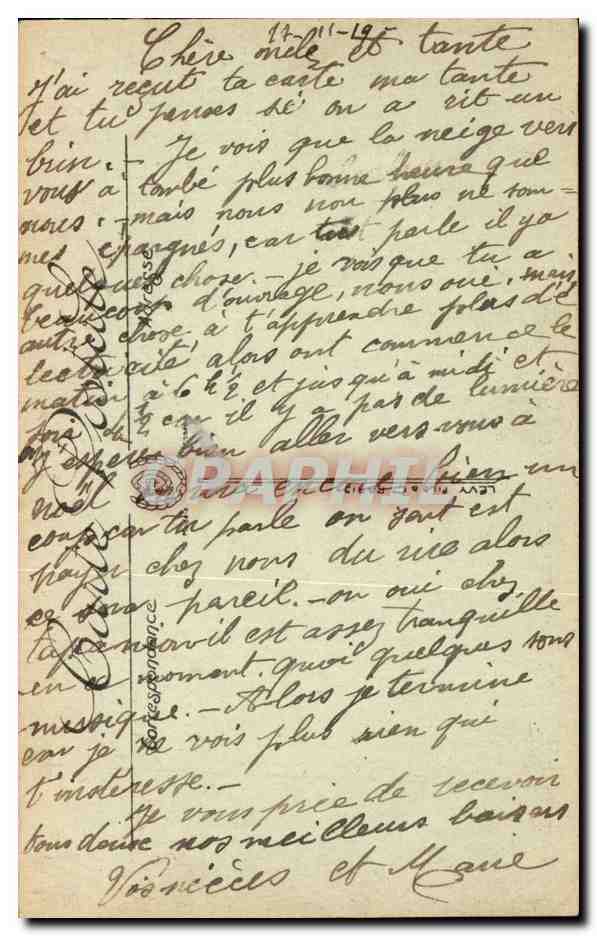 17-11-19-
Chère oncle et tante
J'ai reçut ta carte ma tante
et tu penses si on a rit un
brin. - Je vois que la neige vers
vous à tombé plus bonne heure que
nous. - mais nous non plus ne som=
mes épargnés, car tu parle il y a
quelques chose. - je vois que tu a
beaucoup d'ouvrage, nous oui, mais
autre chose à t'apprendre plus d'é
lectricité, alors ont commence le
matin à 6 h ½ et jusqu'à midi et
½ car il y a pas de lumière
J'espère bien aller vers vous à
noël encore bien un
coup car tu parle on sort est
payer chez nous du rire alors
ce sera pareil. - on oui chez
il est assez tranquille
en moment. quoi quelques sons
musique. - Alors je termine
car je ne vois plus rien qui
t'instéresse. -
Je vous prie de recevoir
tous deux nos meilleurs baisers
Vos nièces et Marie
Carte Postale
Adresse
Correspondance
LEVY FILS & Cie PARIS
CPAPHIL